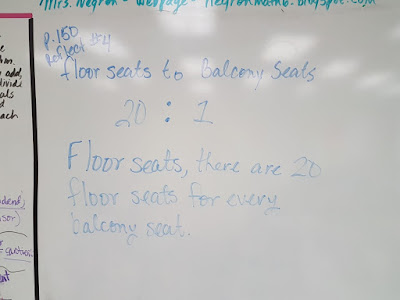 Mrs. Negron - Webpage - negronmath6.blogspot.com
p. 150
Reflect #4
floor seats to Balcony Seats
20 : 1
Floor seats, there are 20
floor seats for every
balcony seat.
add,
each